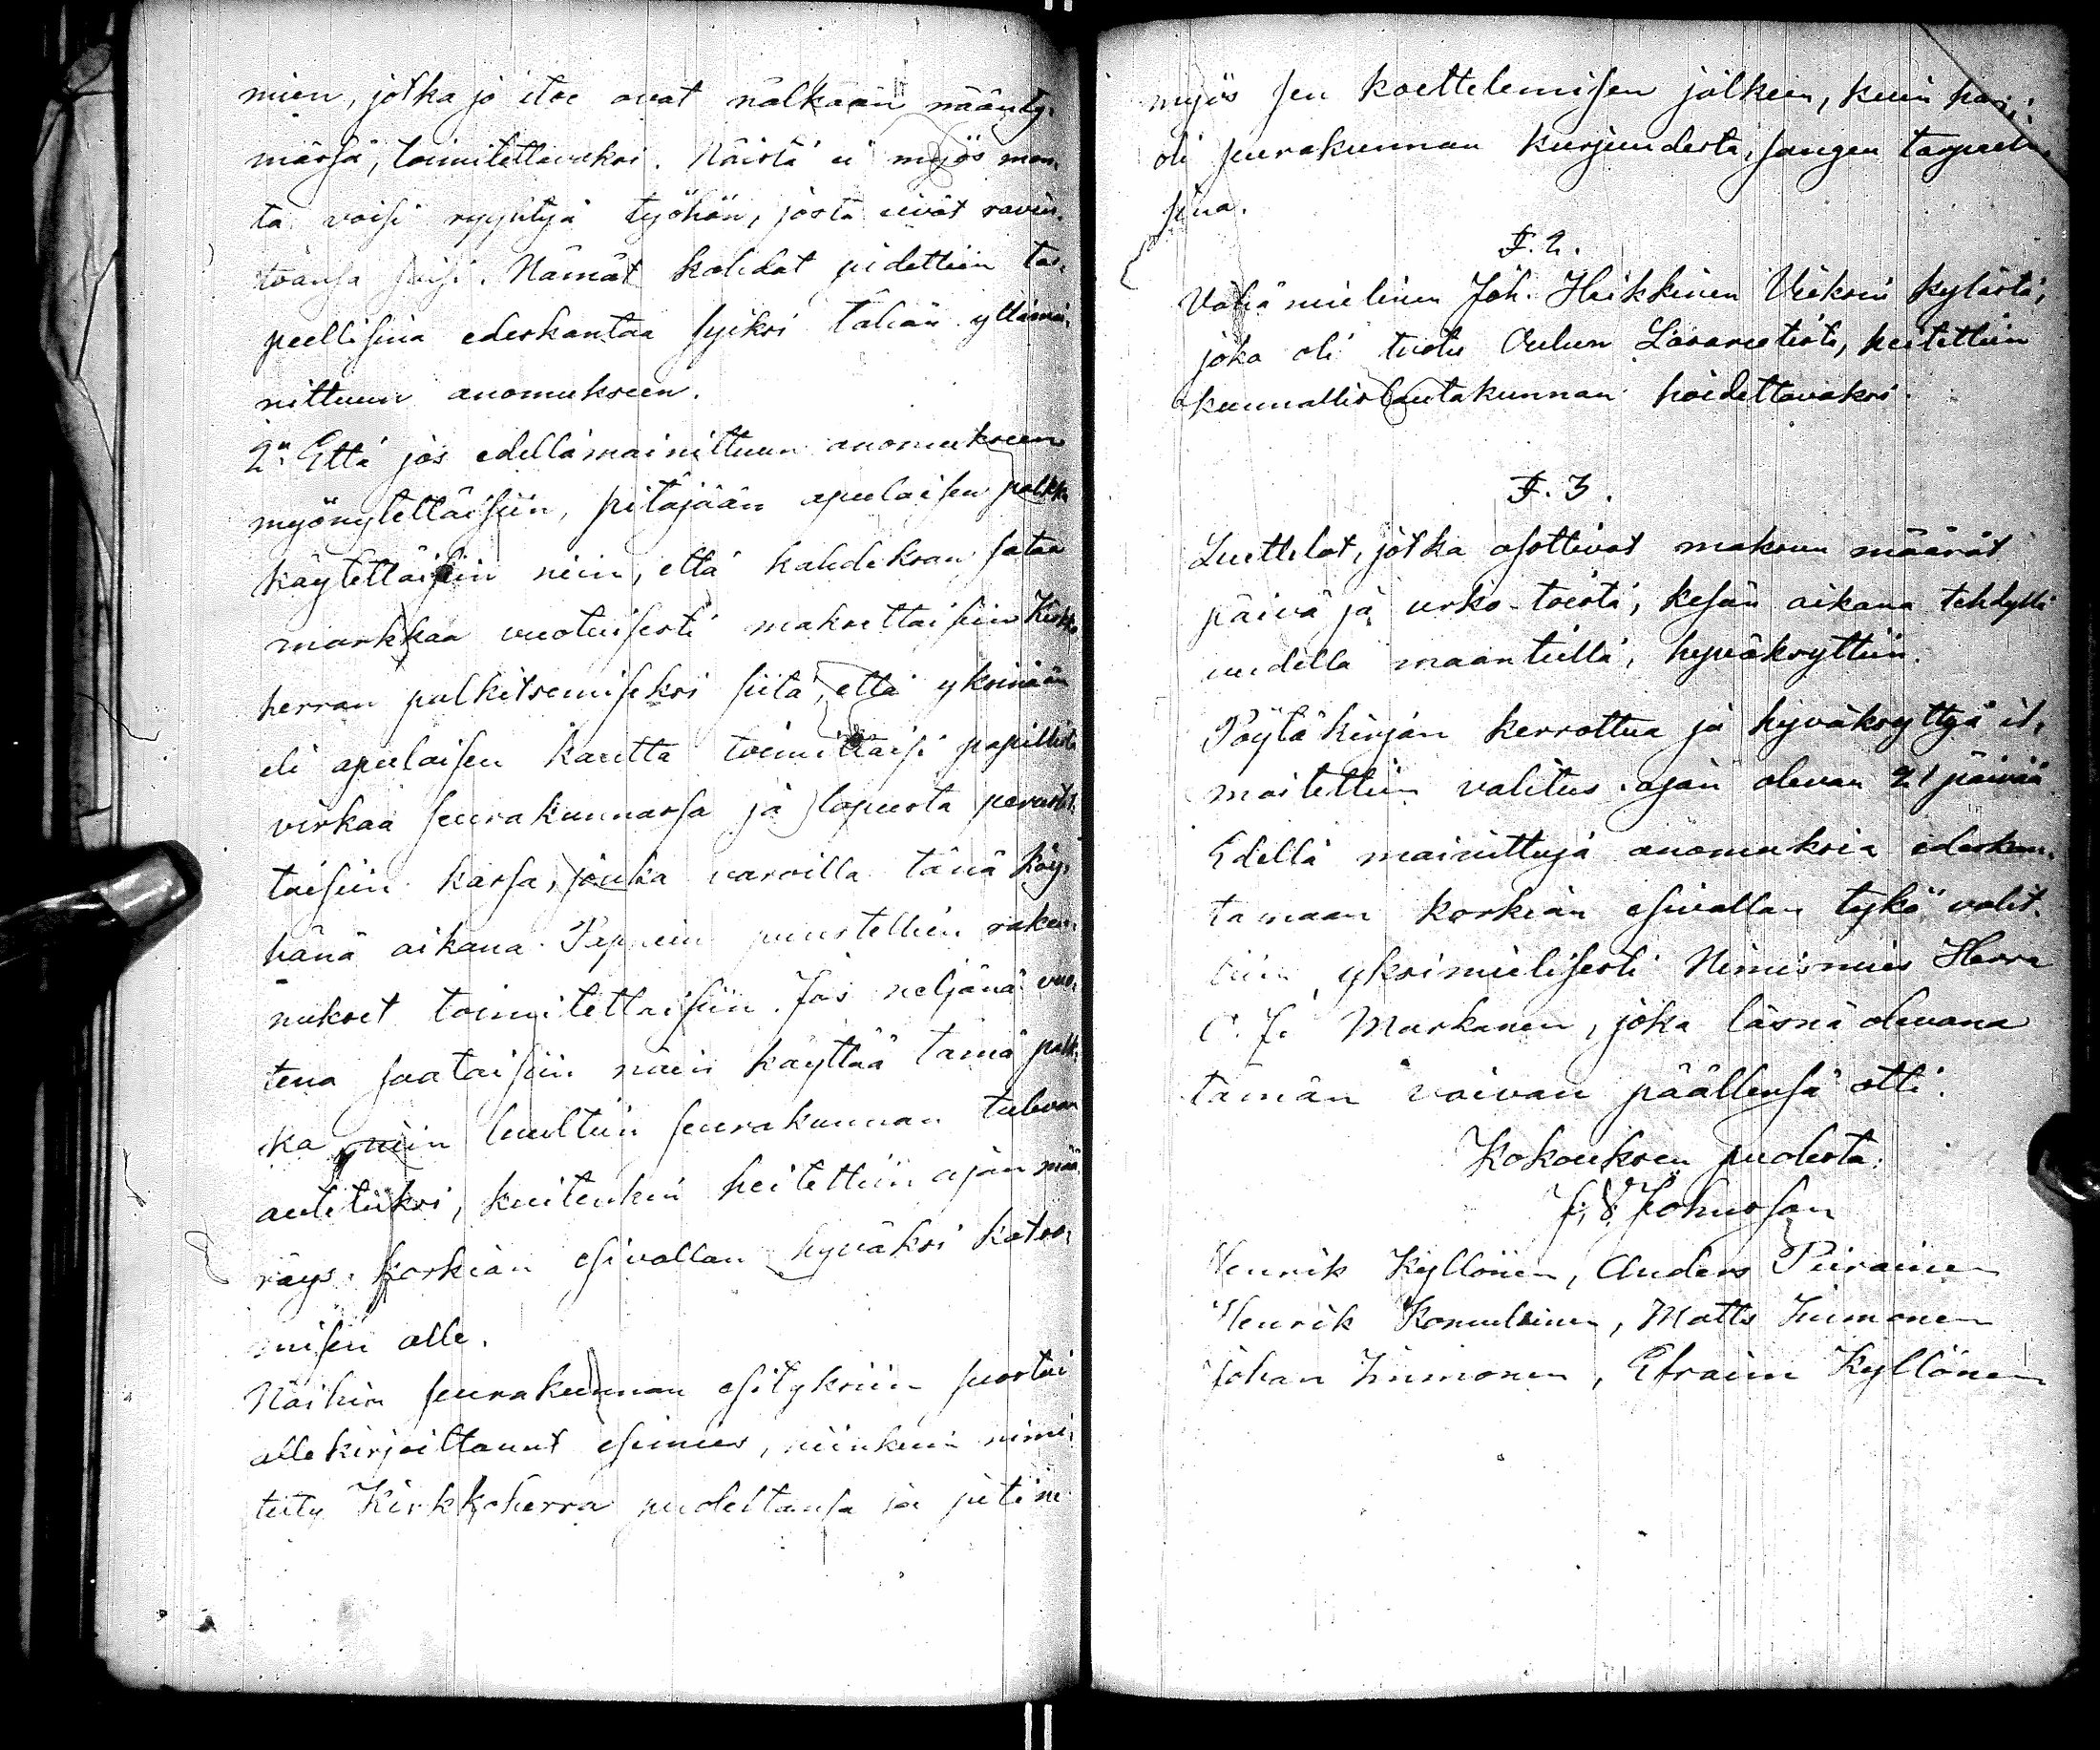 mien, jotka jo itse ovat nälkään määnty-
mässä, toimitettavaksi. Näistä ei myös mon-
ta voisi ryyhtyä työhön, josta eivät ravin-
toansa saisi. Nämät kohdat pidettiin tar-
peellisina edeskantaa syiksi tähän yllämai-
nittuun anomukseen.
2:n Että jos edellämainittuun anomukseen
myönytettäisiin, pitäjään apulaisen palkka
käytettäisiin niin, että kahdeksan sataa
markkaa vuotuisesti maksettaisiin Kirkko
herran palkitsemiseksi siitä, että yksinään
eli apulaisen kautta toimittaisi papillista
virkaa seurakunnassa ja lopusta perustet-
taisiin kassa, jonka varoilla tänä köy-
hänä aikana Pappein puustellien raken-
nukset toimitettaisiin. Jos neljänä vuo-
tena saataisiin näin käyttää tämä palk-
ka niin luultiin seurakunnan tulevan
autetuksi, kuitenkin heitettiin ajan mää
räys korkian esivallan hyväksi katso-
misen alle.
Näihin seurakunnan esityksiin suostui
allekirjoittanut esimies, niinkuin nimi-
tetty Kirkkoherra puolestansa ja piti ne
myös sen koettelemisen jälkeen, kuin hän
oli seurakunnan kurjuudesta, sangen tarpeeli-
sina.
§. 2.
Vähämielinen Joh. Heikkinen Vieksin kylästä,
joka oli tuotu Oulun Lasaretista, heitettiin
kunnallislautakunnan hoidettavaksi.
§. 3.
Luettelot, jotka osottivat maksun määrät
päivä ja urko-töistä, kesän aikana tehdyllä
uudella maantiellä, hyväksyttiin.
Pöytäkirjan kerrottua ja hyväksyttyä il-
moitettiin valitus-ajan olevan 21 päivää
Edellä mainittuja anomuksia edeskan-
tamaan korkian esivallan tykö valit-
tiin yksimielisesti Nimismies Herra
C. J. Markanen, joka läsnä olevana
tämän vaivan päällensä otti.
Kokouksen puolesta:
J. V. Johnsson
Henrik Kyllönen, Anders Piirainen
Henrik Komulainen, Matts Immonen
Johan Immonen, Efraim Kyllönen